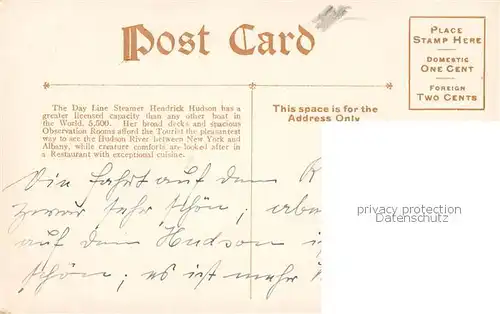 Post Card
PLACE
STAMP HERE
DOMESTIC
ONE CENT
FOREIGN
TWO CENTS
The Day Line Steamer Hendrick Hudson has a
greater licensed capacity than any other boat in
the World, 5,500. Her broad decks and spacious
Observation Rooms afford the Tourist the pleasantest
way to see the Hudson River between New York and
Albany, while creature comforts are looked after in
a Restaurant with exceptional cuisine.
This space is for the
Address Only.
Die Fahrt auf dem R
zwar sehr schön; abe
auf dem Hudson i
schön; es ist mehr
privacy protection
Datenschutz